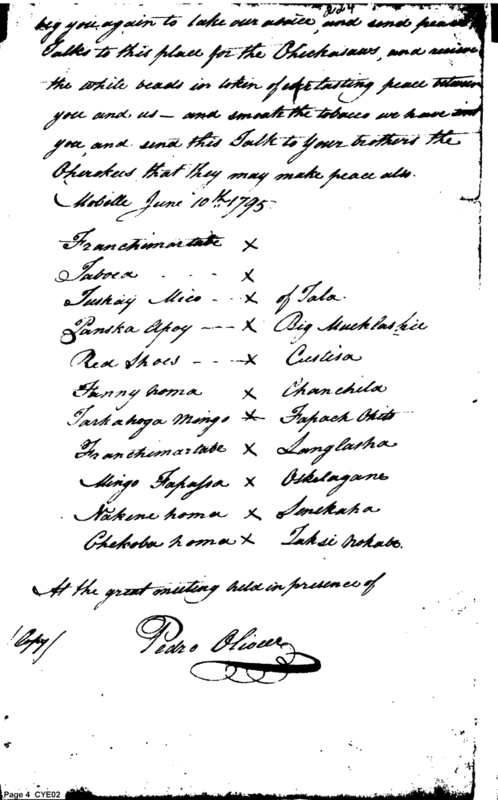 beg you again to take our advice, and send peace
Talks to this place for the Chickasaws, and receive
the while beads in token of everlasting peace between
you and us — and smoak the tobacco we have sent
you, and send this Talk to your brothers the
Cherokees, that they may make peace also.
Mobille June 10th 1795.
Franchimartabe x
Taboca .... x
Tuskay Mico - - - x of Tala.
Panska Apoy - - - x Big Mucklashie
Red Shoes - - - x Custisa
Fanny homa x Chanchila
Tarkahoga Mingo x Fapach Chito
Franchimartabe x Langlasha
Mingo Fapassa x Oskelagane
Nakene homa x Senekaha
Chekoba homa x Taksi hokabe.
At the great meeting held in presence of
(Copy) Pedro Oliver
Page 4 CYE02